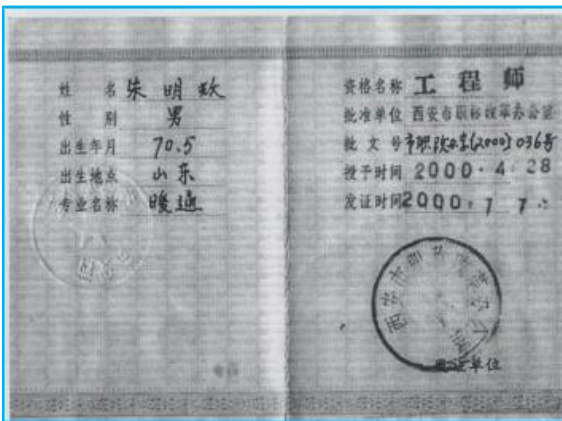 姓 名 朱明
性 别 男
出生年月 70.5
出生地点 山东
专业名称 暖通
资格名称 工程师
批准单位 西安市职称改革办公室
批文号 市职改办字(2000)036号
授予时间 2000.4.28
发证时间 2000.7.7
西安市职称改革办公室
发证单位